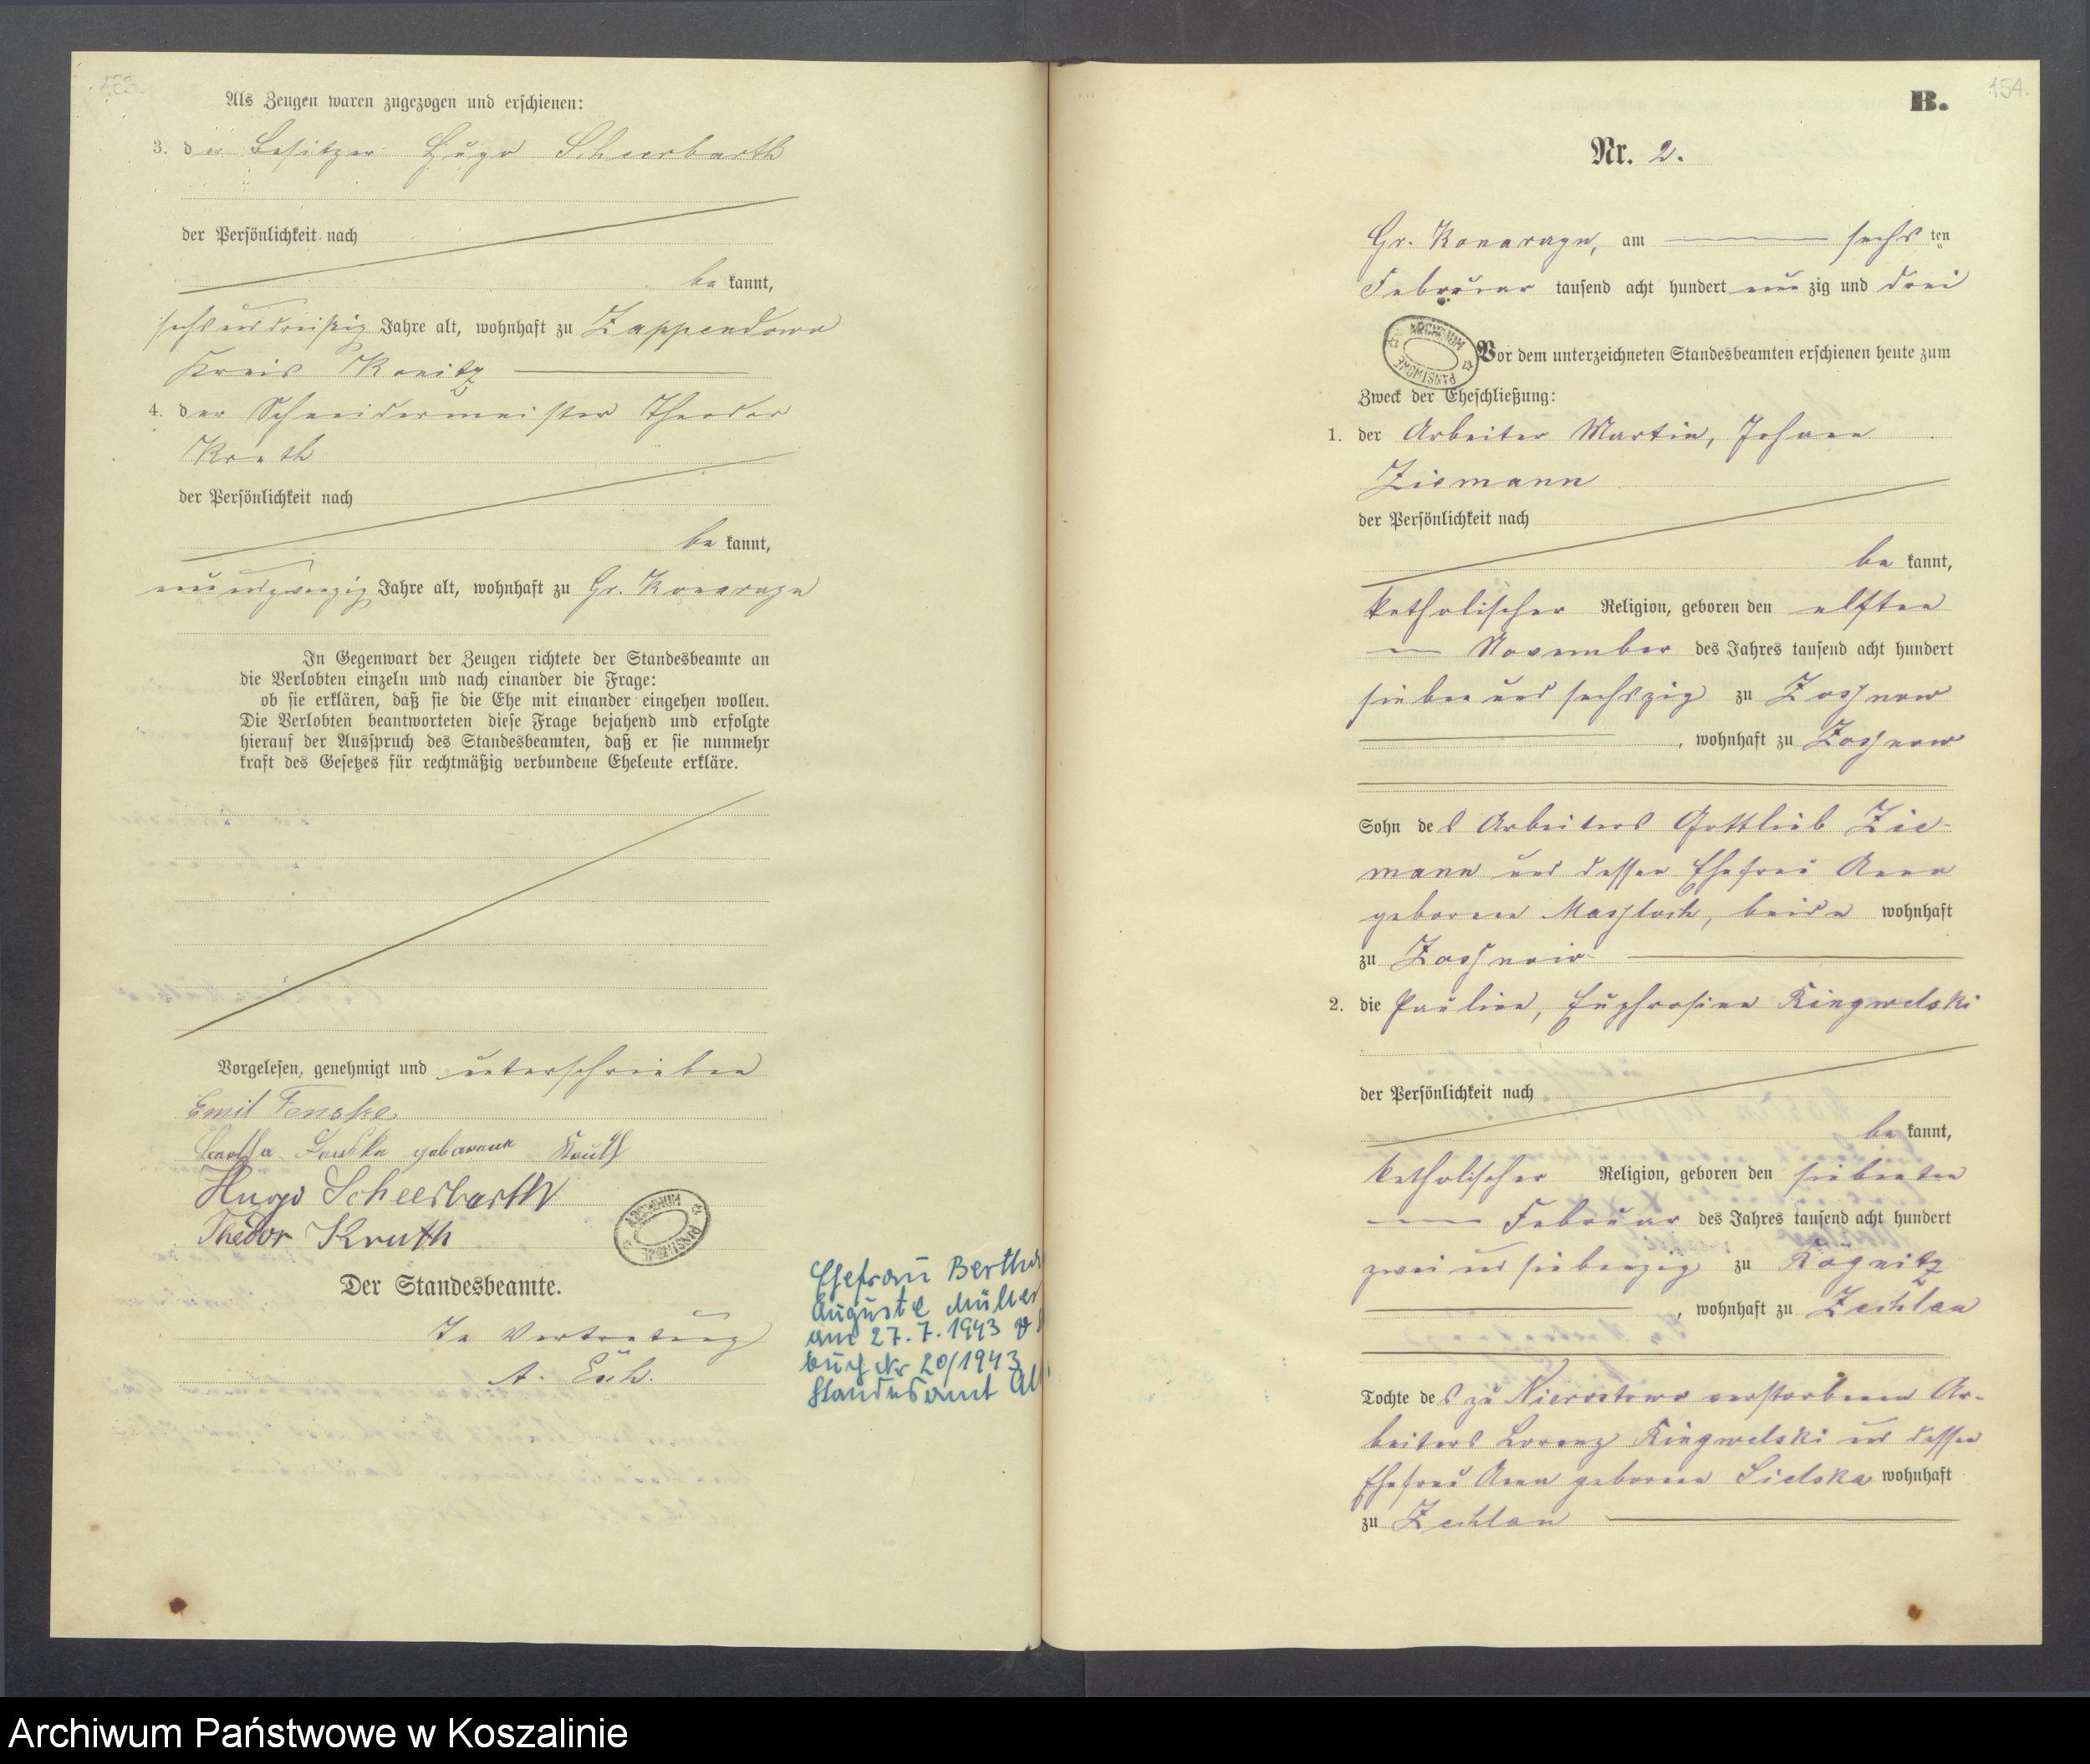 153.
Als Zeugen waren zugezogen und erschienen:
3. der Besitzer Hugo Scheerbarth
der Persönlichkeit nach
be kannt,
sechsunddreißig Jahre alt, wohnhaft zu Zappendowo
Kreis Konitz
4. der Schneidermeister Theodor
Kruth
der Persönlichkeit nach
be kannt,
neunundzwanzig Jahre alt, wohnhaft zu Gr. Konarzyn
In Gegenwart der Zeugen richtete der Standesbeamte an
die Verlobten einzeln und nach einander die Frage:
ob sie erklären, daß sie die Ehe mit einander eingehen wollen.
Die Verlobten beantworteten diese Frage bejahend und erfolgte
hierauf der Ausspruch des Standesbeamten, daß er sie nunmehr
kraft des Gesetzes für rechtmäßig verbundene Eheleute erkläre.
Vorgelesen, genehmigt und unterschrieben
Emil Fenske
Bertha Fenske geborene Kruth
Hugo Scheerbarth
Thedor Kruth
ARCHIWUM PAŃSTWOWE
Der Standesbeamte.
In Vertretung
A.
Ehefrau Bertha
Auguste Müller
am 27.7.1943
buch Nr 20/1943
Standesamt
154.
B.
Nr. 2.
Gr. Konarzyn, am sechs ten
Februar tausend acht hundert neun zig und drei
ARCHIWUM PAŃSTWOWE
Vor dem unterzeichneten Standesbeamten erschienen heute zum
Zweck der Eheschließung:
1. der Arbeiter Martin, Johann
Ziemann
der Persönlichkeit nach
be kannt,
katholischer Religion, geboren den elften
November des Jahres tausend acht hundert
sieben und sechszig zu Zossnow
, wohnhaft zu Zossnow
Sohn des Arbeiters Gottlieb Zie-
mann und dessen Ehefrau Anna
geborene Massloch, beide wohnhaft
zu Zossnow
2. die Pauline, Euphrosine Ringwelski
der Persönlichkeit nach
be kannt,
katholischer Religion, geboren den siebenten
Februar des Jahres tausend acht hundert
zwei und siebenzig zu Kögnitz
, wohnhaft zu Zechlau
Tochte des zu Nierostowo verstorbenen Ar-
beiters Lorenz Ringwelski und dessen
Ehefrau Anna geborene Sielska wohnhaft
zu Zechlau
Archiwum Państwowe w Koszalinie